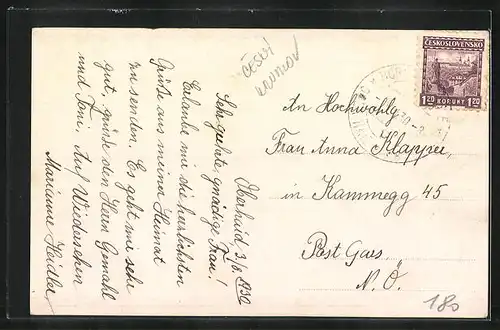 Oberhaid, 3/8. 1930
Sehr geehrte, gnädige Frau!
Erlaube mir die herzlichsten
Grüße aus meiner Heimat
zu senden. Es geht mir sehr
gut, grüße den Herrn Gemahl
und Toni. Auf Wiedersehen
Marianne Heidler
ČESKÝ
ČESKOSLOVENSKO
1.20 KORUNY 1.20
An Hochwohlg.
Frau Anna Klapper,
in Kammegg 45
Post Gars
N. Ö.
180